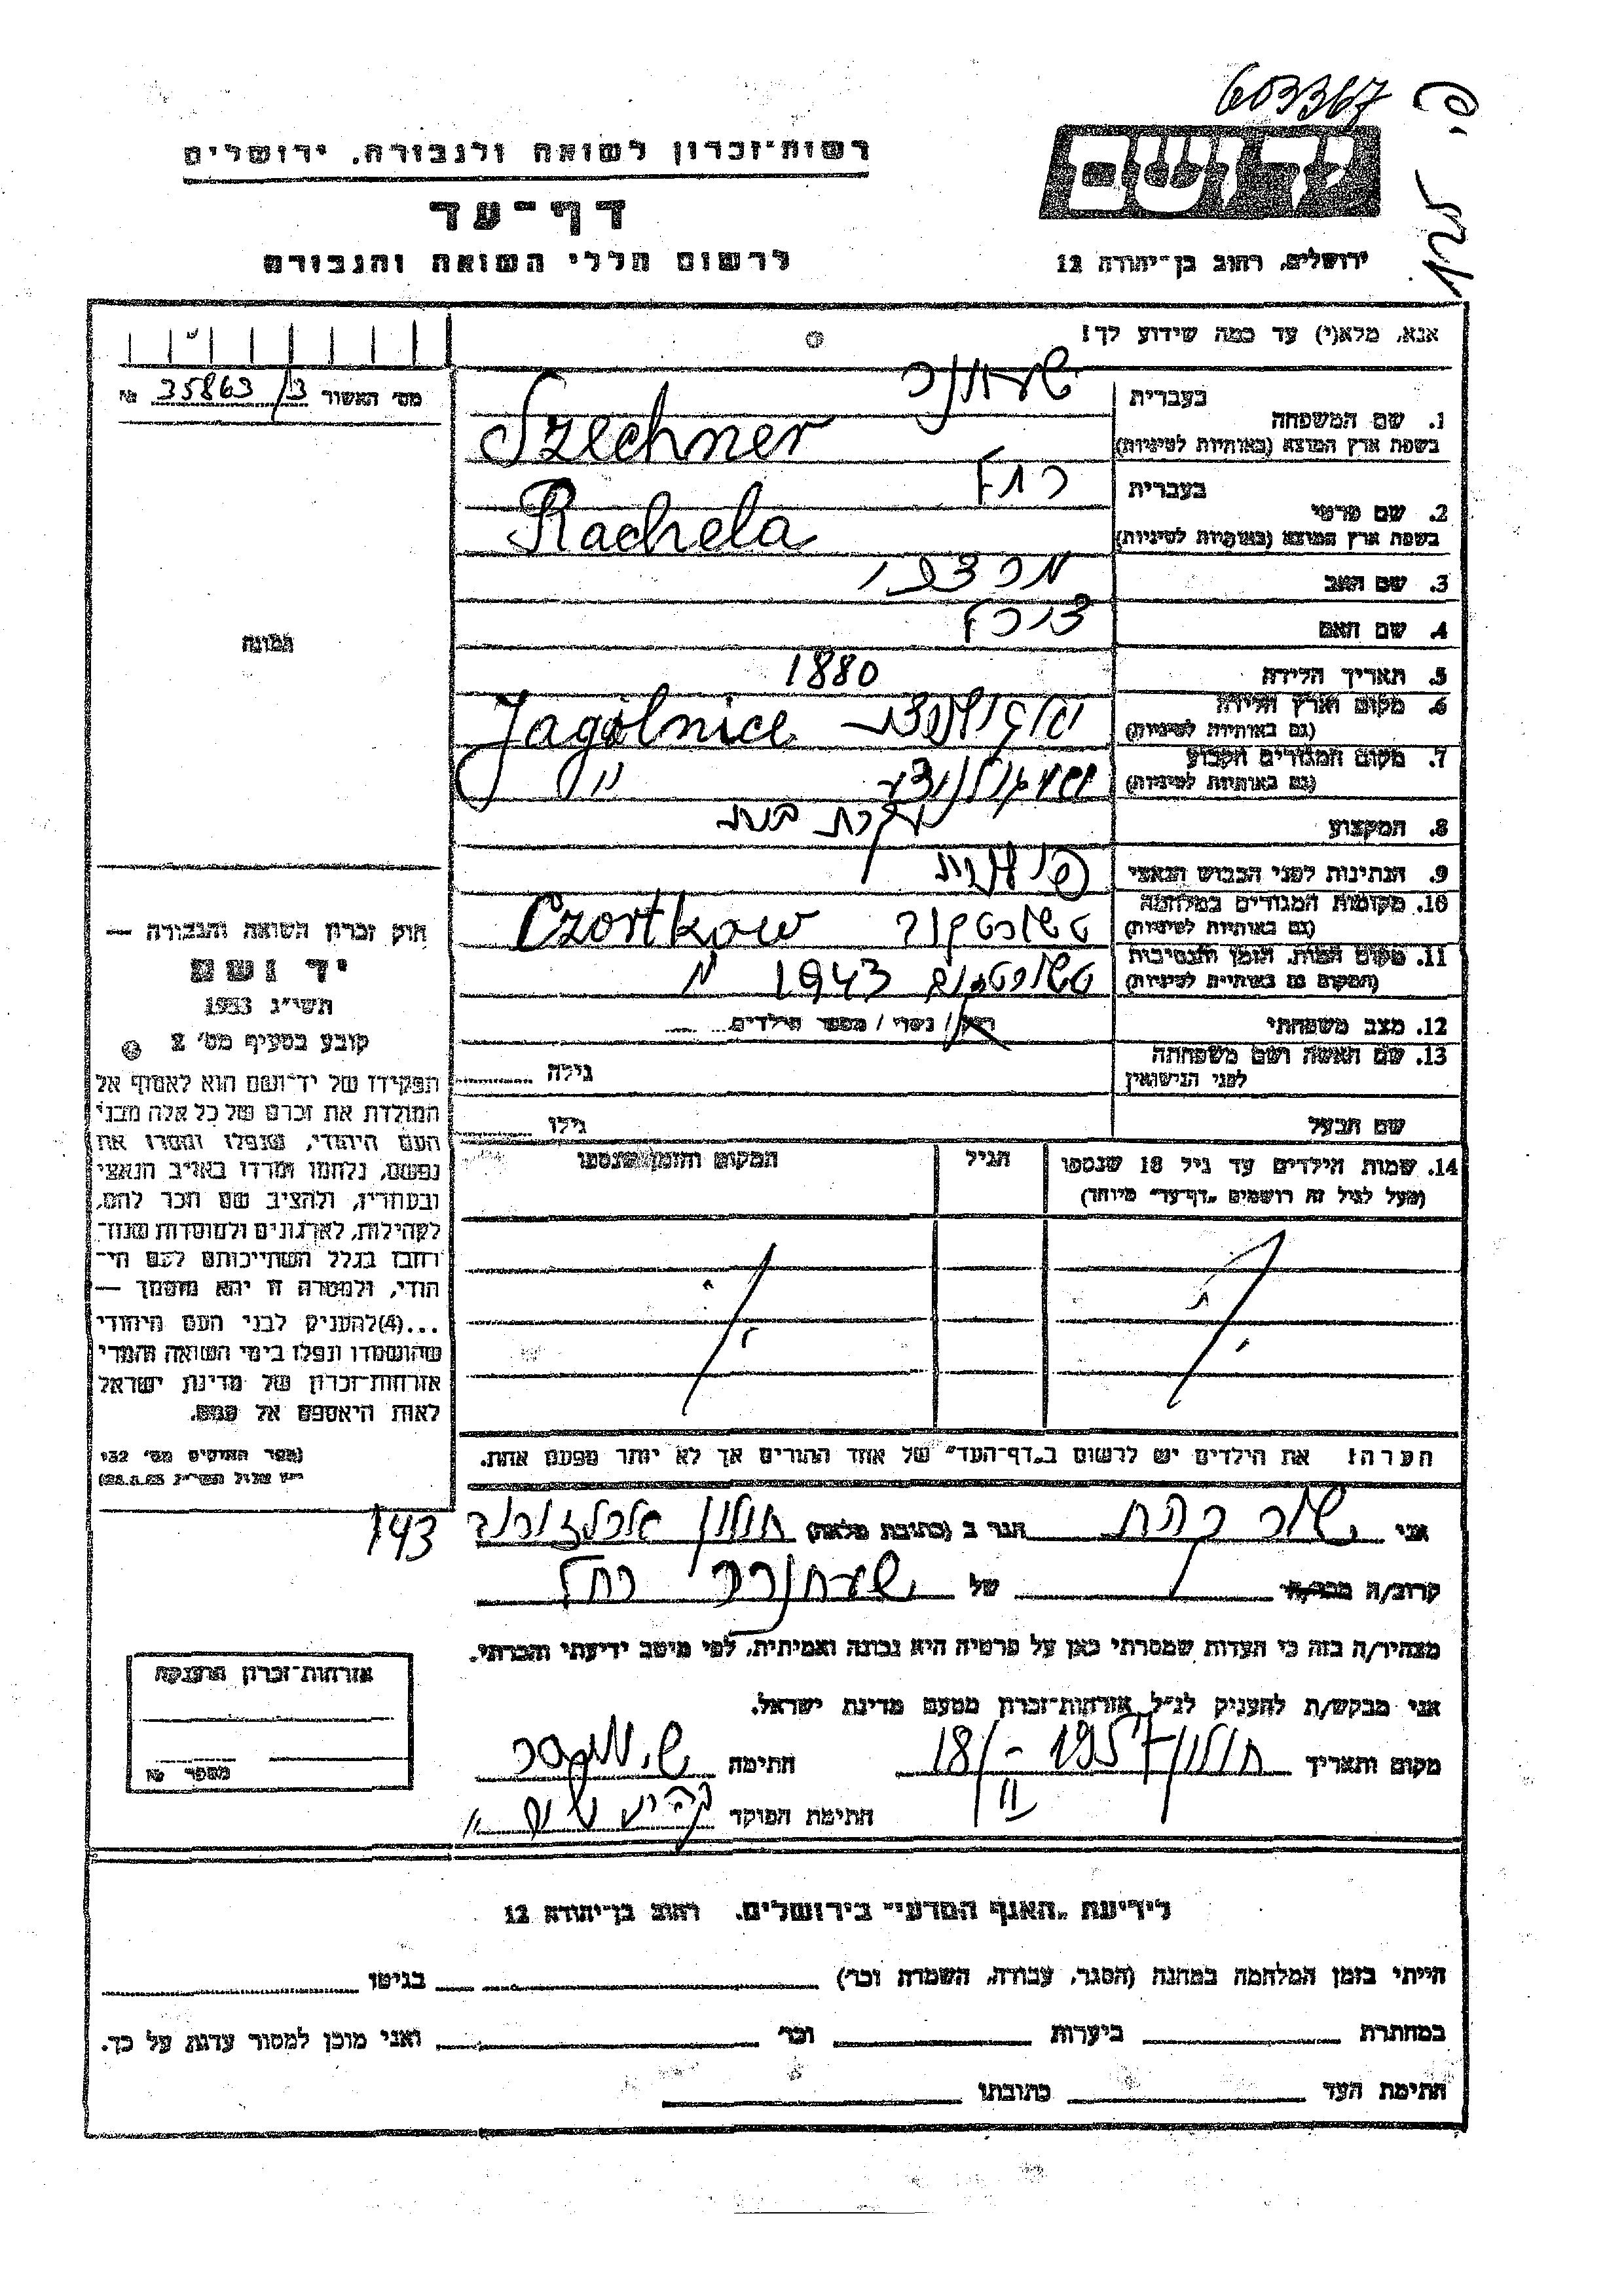 603367
רשות־זכרון לשואה ולגבורה, ירושלים
יד ושם
דף־עד
לרשום חללי השואה והגבורה
ירושלים, רחוב בן־יהודה 12
אנא, מלא(י) עד כמה שידוע לך!
מס׳ האשור 35863/3 №
1. שם המשפחה
בעברית
בשפת ארץ המוצא (באותיות לטיניות) Szechner
2. שם פרטי
בעברית רחל
בשפת ארץ המוצא (באותיות לטיניות) Rachela
3. שם האב מרדכי
4. שם האם
5. תאריך הלידה 1880
6. מקום וארץ הלידה
(גם באותיות לטיניות) Jagolnice
7. מקום המגורים הקבוע
(גם באותיות לטיניות) "
8. המקצוע עקרת בית
9. הנתינות לפני הכבוש הנאצי פולנית
10. מקומות המגורים במלחמה
(גם באותיות לטיניות) טשורטקוב Czortkow
11. מקום המות, הזמן והנסיבות
(המקום גם באותיות לטיניות) טשורטקוב 1943 "
12. מצב משפחתי רווק / נשוי / מספר הילדים
13. שם האשה ושם משפחתה
לפני הנישואין גילה
שם הבעל גילו
14. שמות הילדים עד גיל 18 שנספו
(מעל לגיל זה רושמים „דף־עד” מיוחד)
הגיל
המקום והזמן שנספו
הערה: את הילדים יש לרשום ב„דף־העד” של אחד ההורים אך לא יותר מפעם אחת.
תמונה
חוק זכרון השואה והגבורה —
יד ושם
תשי״ג 1953
קובע בסעיף מס׳ 2
תפקידו של יד־ושם הוא לאסוף אל
המולדת את זכרם של כל אלה מבני
העם היהודי, שנפלו ומסרו את
נפשם, נלחמו ומרדו באויב הנאצי
ובעוזריו, ולהציב שם וזכר להם,
לקהילות, לארגונים ולמוסדות שנח־
רבו בגלל השתייכותם לעם הי־
הודי, ולמטרה זו יהא מוסמך —
...(4)להעניק לבני העם היהודי
שהושמדו ונפלו בימי השואה והמרי
אזרחות־זכרון של מדינת ישראל
לאות היאספם אל עמם.
(ספר החוקים מס׳ 132
י״ז אלול תשי״ג 28.8.53)
אני הגר ב (כתובת מלאה) חולון 143
קרוב/ה מכר/ה של שעחנר רחל
מצהיר/ה בזה כי העדות שמסרתי כאן על פרטיה היא נכונה ואמיתית, לפי מיטב ידיעתי והכרתי.
אני מבקש/ת להעניק לנ״ל אזרחות־זכרון מטעם מדינת ישראל.
מקום ותאריך חולון 18/II - 1957 חתימה
חתימת הפוקד
אזרחות־זכרון הוענקה
מספר №
לידיעת „האגף המדעי” בירושלים, רחוב בן־יהודה 12
הייתי בזמן המלחמה במחנה (הסגר, עבודה, השמדה וכו׳) בגיטו
במחתרת ביערות וכו׳ ואני מוכן למסור עדות על כך.
חתימת העד כתובתו